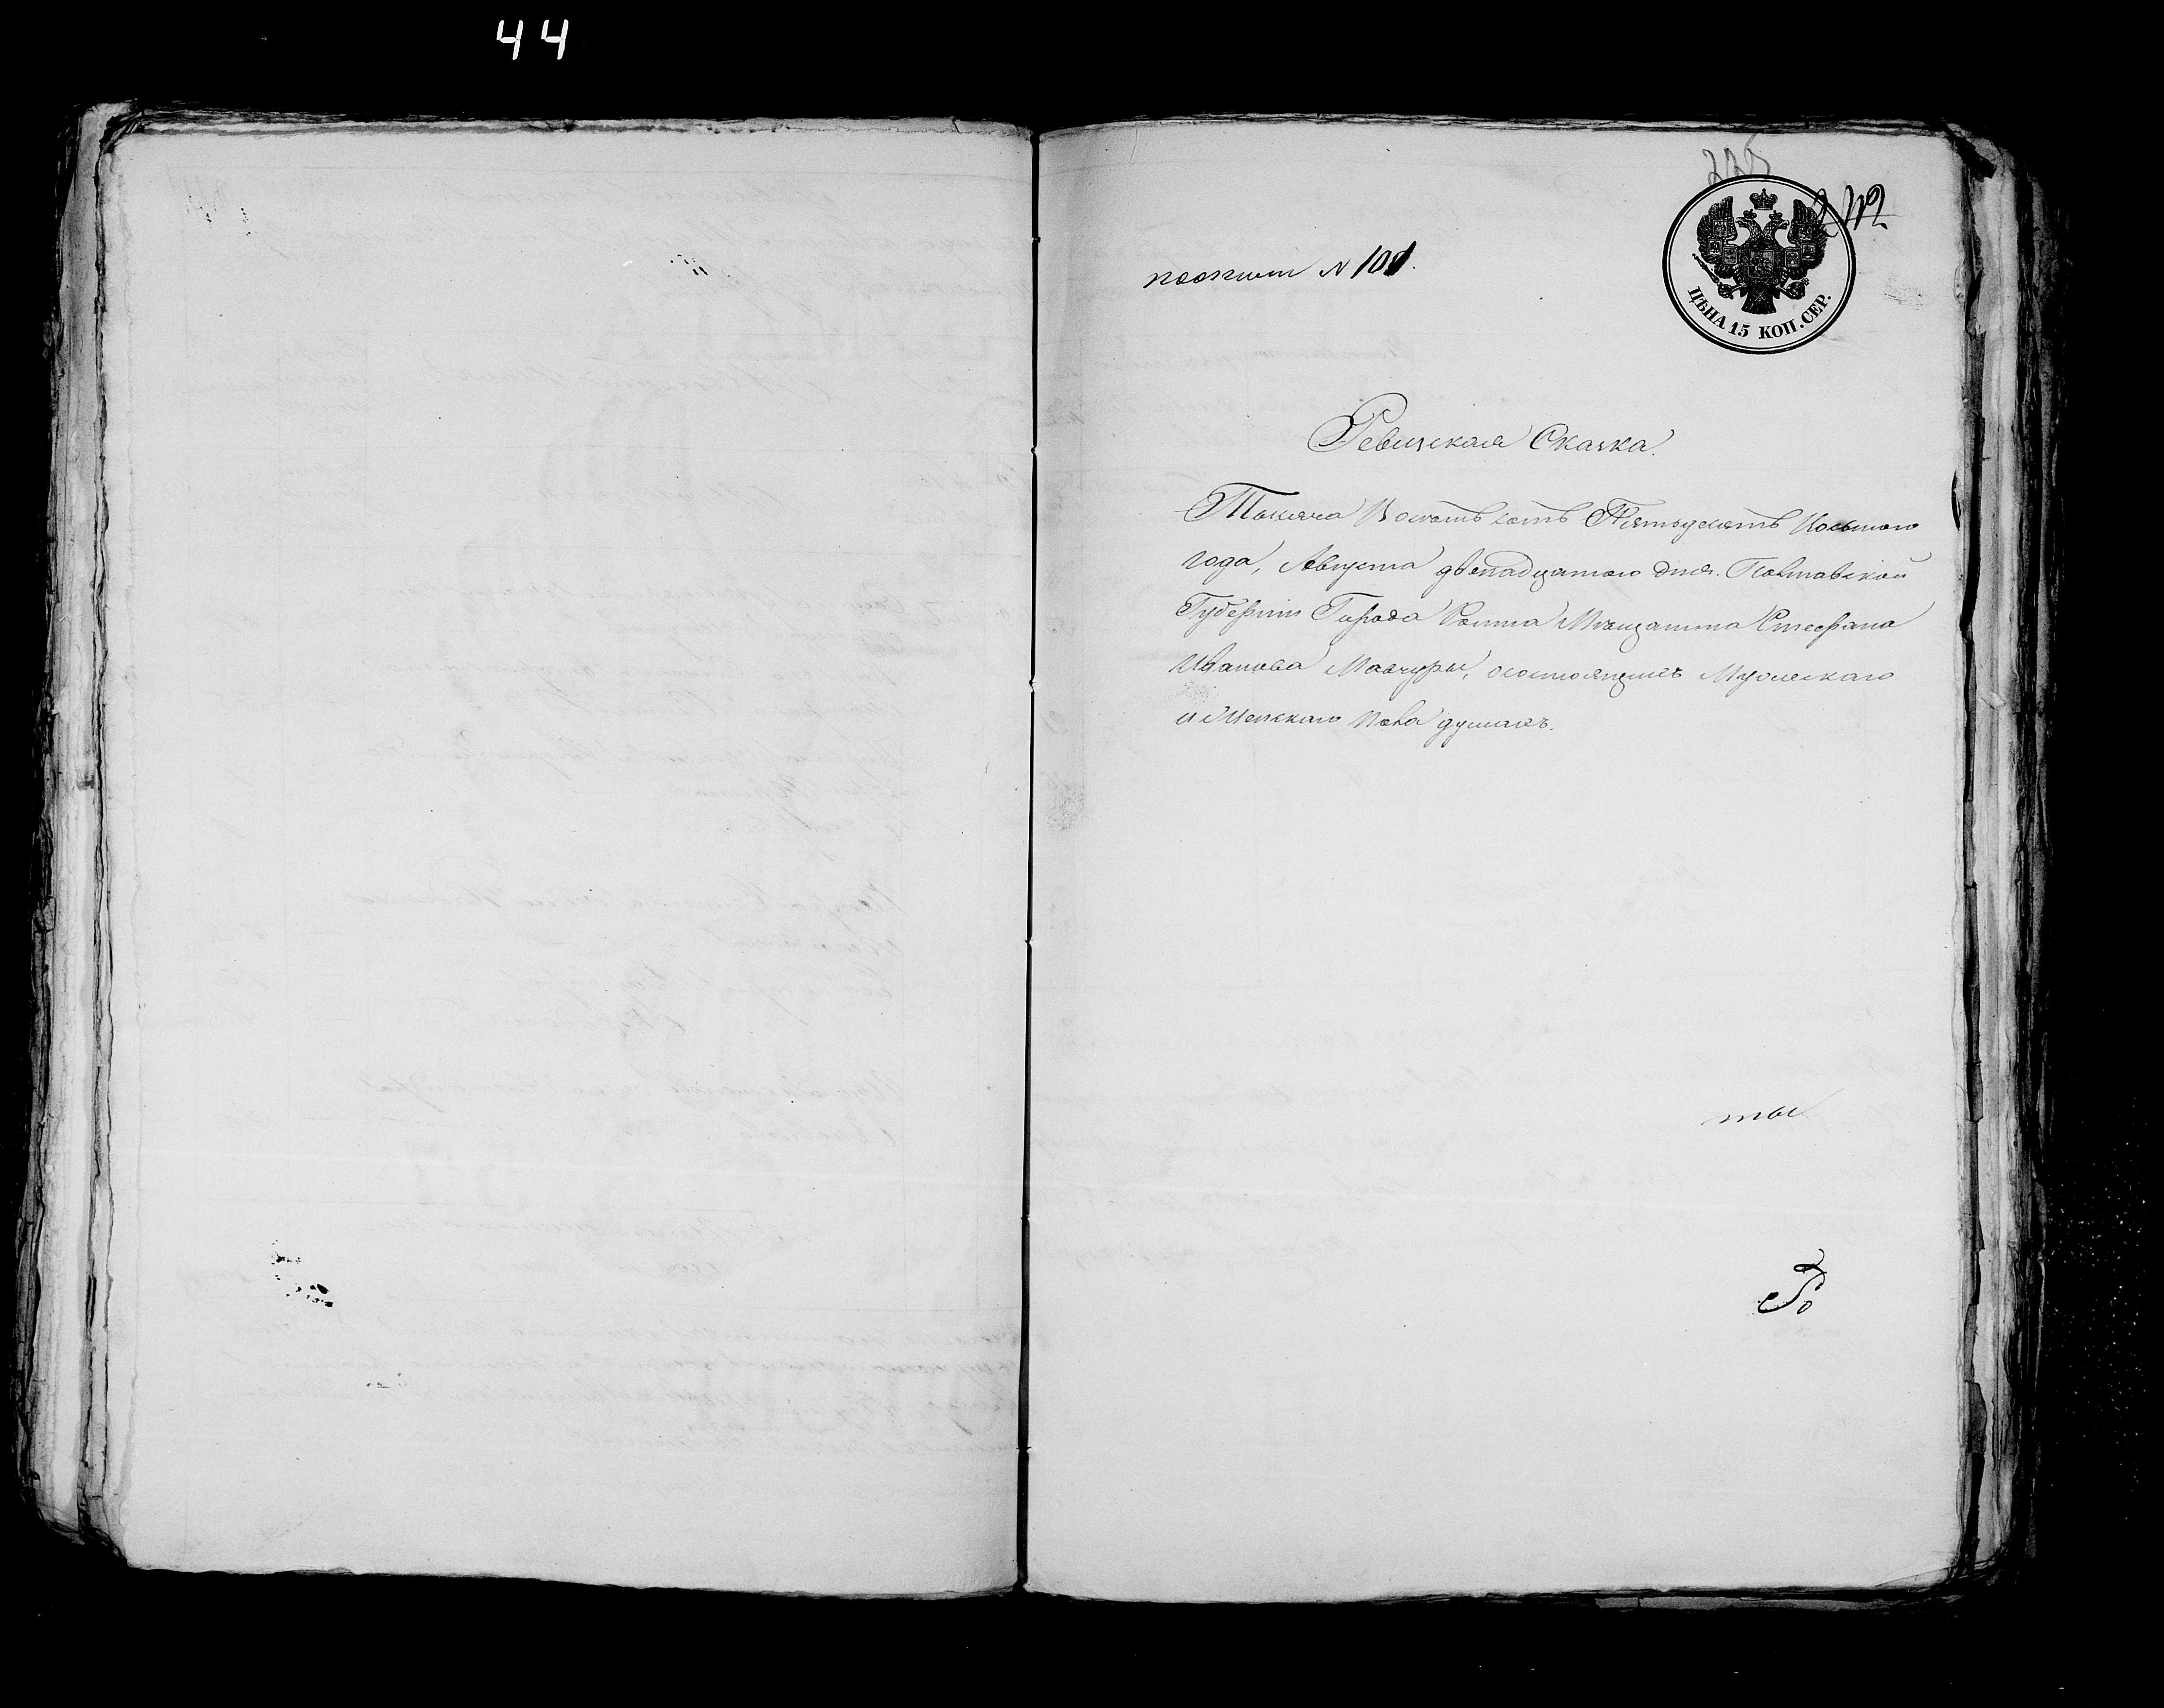 44
225
242
ЦѢНА 15 КОП. СЕР.
N 101.
Ревизская Сказка.
Тысяча Восемь сотъ Пятьдесятъ Восьмого
года, Августа двенадцатого дня. Полтавской
Губернии Города Ромна Мѣщанина Стефана
Иванова Мавчуры, осостоящихъ Мужескаго
и Женскаго пола душахъ.
ты
Ро